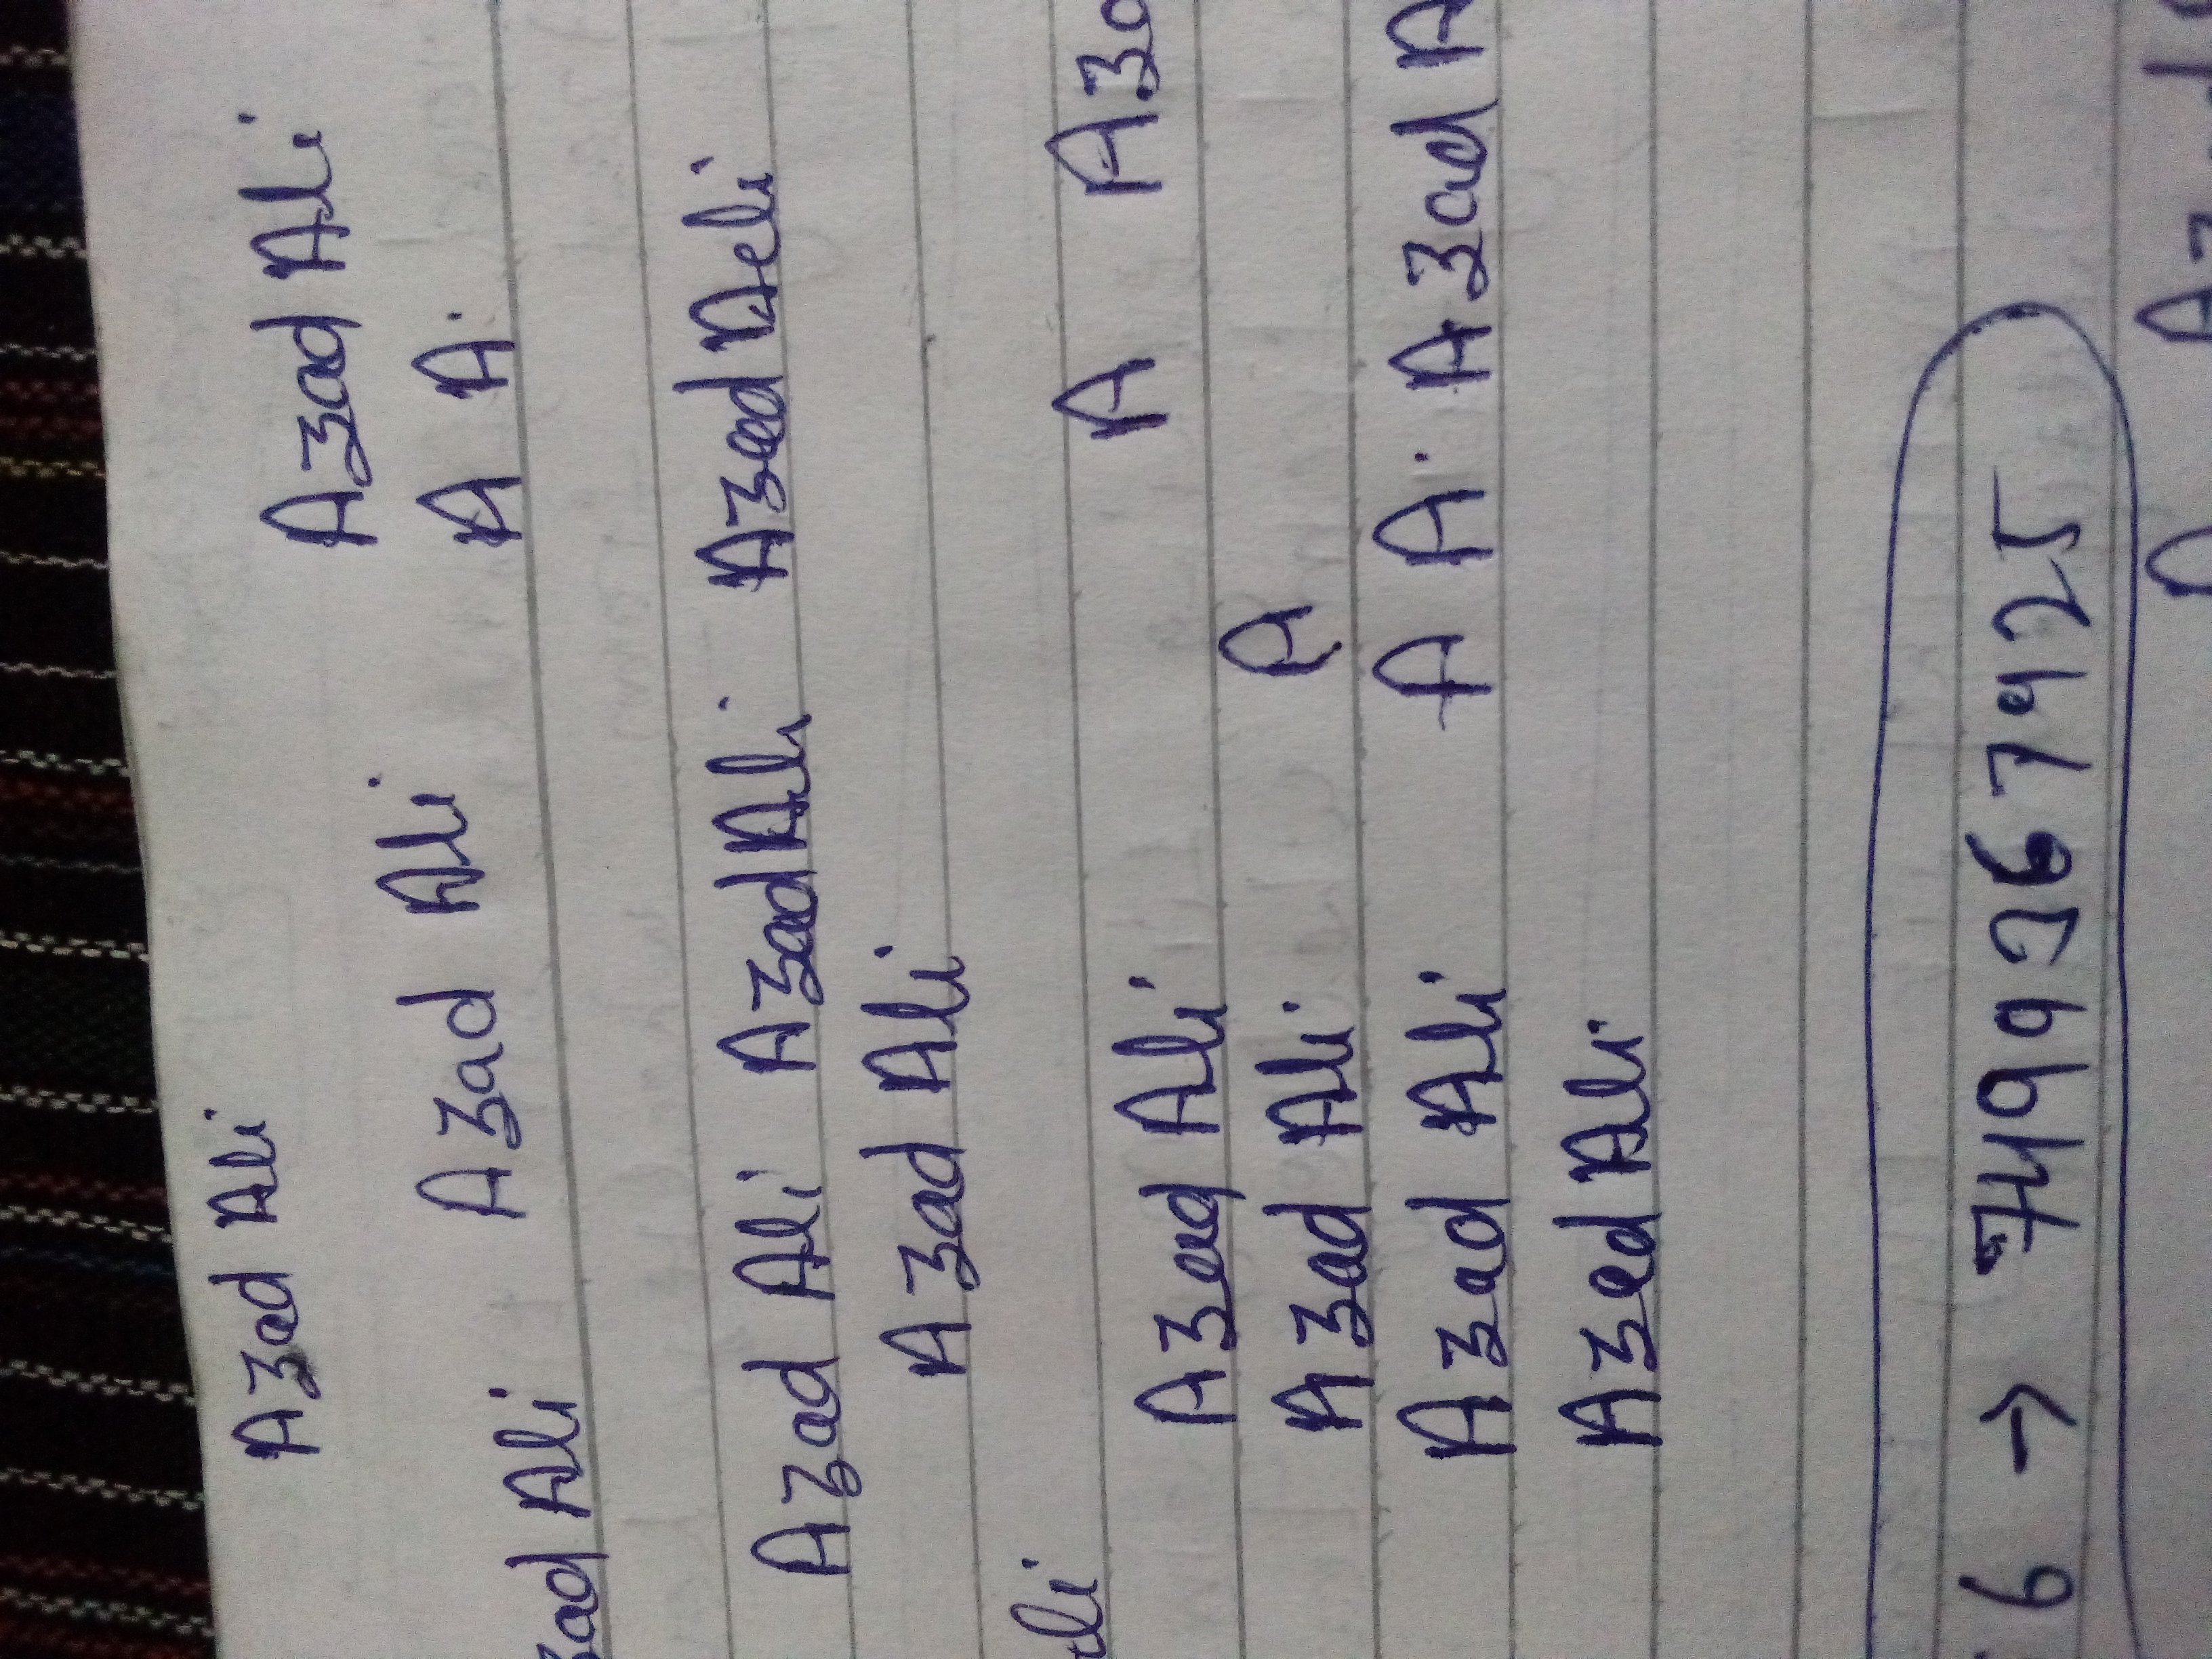 Azad Ali Azad Ali
Azad Ali A A.
zad Ali
Azad Ali Azad Ali Azaed Aeli
Azad Ali
Ali A A
Azaad Ali
Azad Ali A
Azad Ali A A. Azad A
Azad Ali
6 → 7499767925